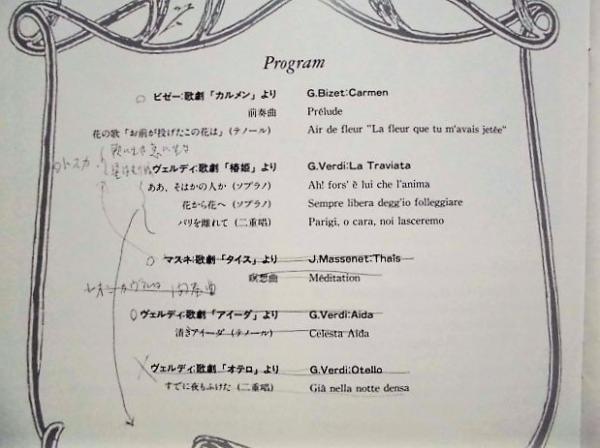 Program
ビゼー:歌劇「カルメン」より G.Bizet:Carmen
前奏曲 Prélude
花の歌「お前が投げたこの花は」(テノール) Air de fleur "La fleur que tu m'avais jetée"
歌に生き恋に生き
トスカ 星は
ヴェルディ:歌劇「椿姫」より G.Verdi:La Traviata
ああ、そはかの人か (ソプラノ) Ah! fors' è lui che l'anima
花から花へ (ソプラノ) Sempre libera degg'io folleggiare
パリを離れて (二重唱) Parigi, o cara, noi lasceremo
マスネ:歌劇「タイス」より J.Massenet:Thaïs
瞑想曲 Méditation
レオンカヴァルロ 間奏曲
ヴェルディ:歌劇「アイーダ」より G.Verdi:Aida
清きアイーダ (テノール) Celesta Aida
ヴェルディ:歌劇「オテロ」より G.Verdi:Otello
すでに夜もふけた (二重唱) Già nella notte densa